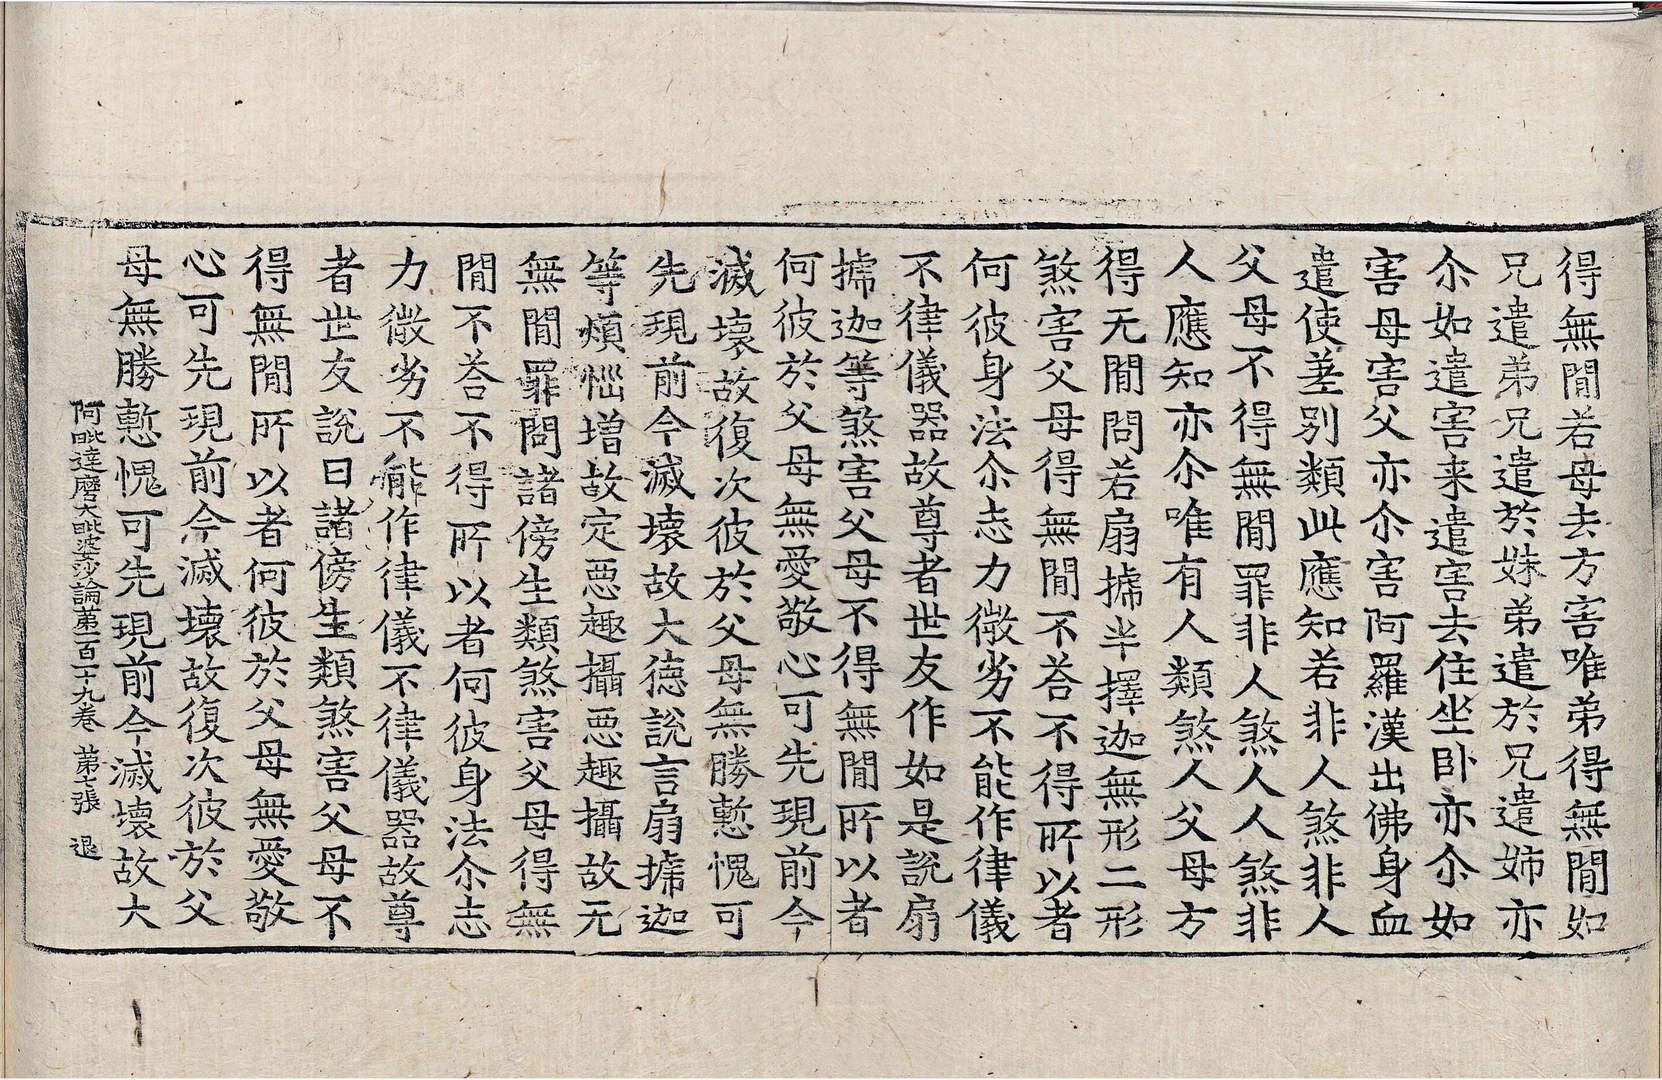 得無閒若母去方害唯弟得無閒如
兄遣弟兄遣於姝弟遣於兄遣姉亦
尒如遣害来遣害去住坐卧亦尒如
害母害父亦尒害阿羅漢出佛身血
遣使差别類此應知若非人煞非人
父母不得無閒罪非人煞人人煞非
人應知亦尒唯有人類煞人父母方
得无閒問若扇搋半擇迦無形二形
煞害父母得無閒不荅不得所以者
何彼身法尒志力微劣不能作律儀
不律儀器故尊者世友作如是說扇
搋迦等煞害父母不得無閒所以者
何彼於父母無愛敬心可先現前今
滅壞故復次彼於父母無勝慙愧可
先現前今滅壞故大德說言扇搋迦
等煩惱增故定惡趣攝惡趣攝故无
無閒罪問諸傍生類煞害父母得無
閒不荅不得所以者何彼身法尒志
力微劣不能作律儀不律儀器故尊
者世友說曰諸傍生類煞害父母不
得無閒所以者何彼於父母無愛敬
心可先現前今滅壞故復次彼於父
母無勝慙愧可先現前今滅壞故大
阿毗達磨大毗婆沙論第一百一十九卷 第七張 退